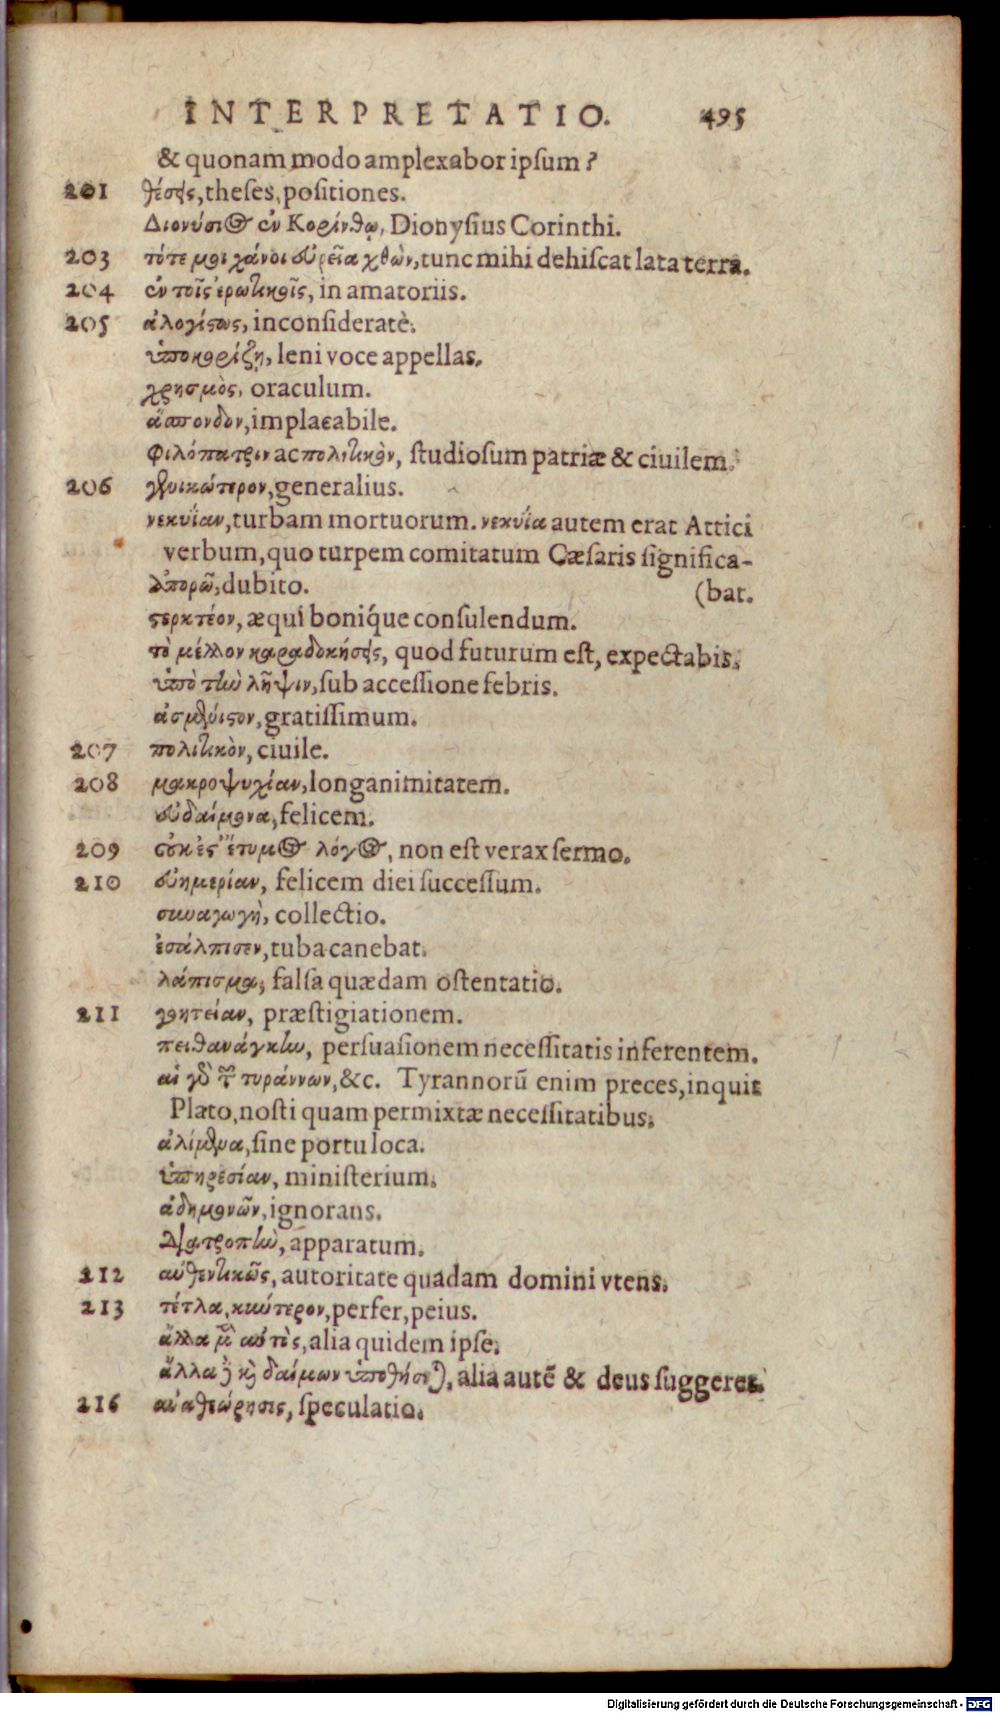 INTERPRETATIO. 495
& quonam modo amplexabor ipsum?
201 θέσεις, theses, positiones.
Διονύσιος ἐν Κορίνθῳ, Dionysius Corinthi.
203 τότε μοι χάνοι εὐρεῖα χθὼν, tunc mihi dehiscat lata terra.
204 ἐν τοῖς ἐρωτικοῖς, in amatoriis.
205 ἀλογίστως, inconsideratè.
ὑποκορίζῃ, leni voce appellas.
χρησμὸς, oraculum.
ἄσπονδον, implacabile.
φιλόπατριν ac πολιτικὸν, studiosum patriæ & ciuilem.
206 γενικώτερον, generalius.
νεκυΐαν, turbam mortuorum. νεκυΐα autem erat Attici
verbum, quo turpem comitatum Cæsaris significa-
ἀπορῶ, dubito. (bat.
στερκτέον, æqui boníque consulendum.
τὸ μέλλον καραδοκήσεις, quod futurum est, expectabis.
ὑπὸ τὴν λῆψιν, sub accessione febris.
ἀσμενιστον, gratissimum.
207 πολιτικὸν, ciuile.
208 μακροψυχίαν, longanimitatem.
εὐδαίμονα, felicem.
209 οὐκ ἐς ἔτυμος λόγος, non est verax sermo.
210 εὐημερίαν, felicem diei successum.
συναγωγὴ, collectio.
ἐσάλπισεν, tuba canebat.
λάπισμα, falsa quædam ostentatio.
211 γοητείαν, præstigiationem.
πειθανάγκην, persuasionem necessitatis inferentem.
αἱ γὸ τῶν τυράννων, &c. Tyrannorū enim preces, inquit
Plato, nosti quam permixtæ necessitatibus.
ἀλίμενα, sine portu loca.
ὑπηρεσίαν, ministerium.
ἀδημονῶν, ignorans.
Διατροπὴν, apparatum.
212 αὐθεντικῶς, autoritate quadam domini vtens.
213 τέτλα, κύντερον, perfer, peius.
ἄλλα μὲν αὐτὸς, alia quidem ipse.
ἄλλα δὲ καὶ δαίμων ὑποθήσεται, alia autē & deus suggeret.
216 ἀναθεώρησις, speculatio.
Digitalisierung gefördert durch die Deutsche Forschungsgemeinschaft - DFG